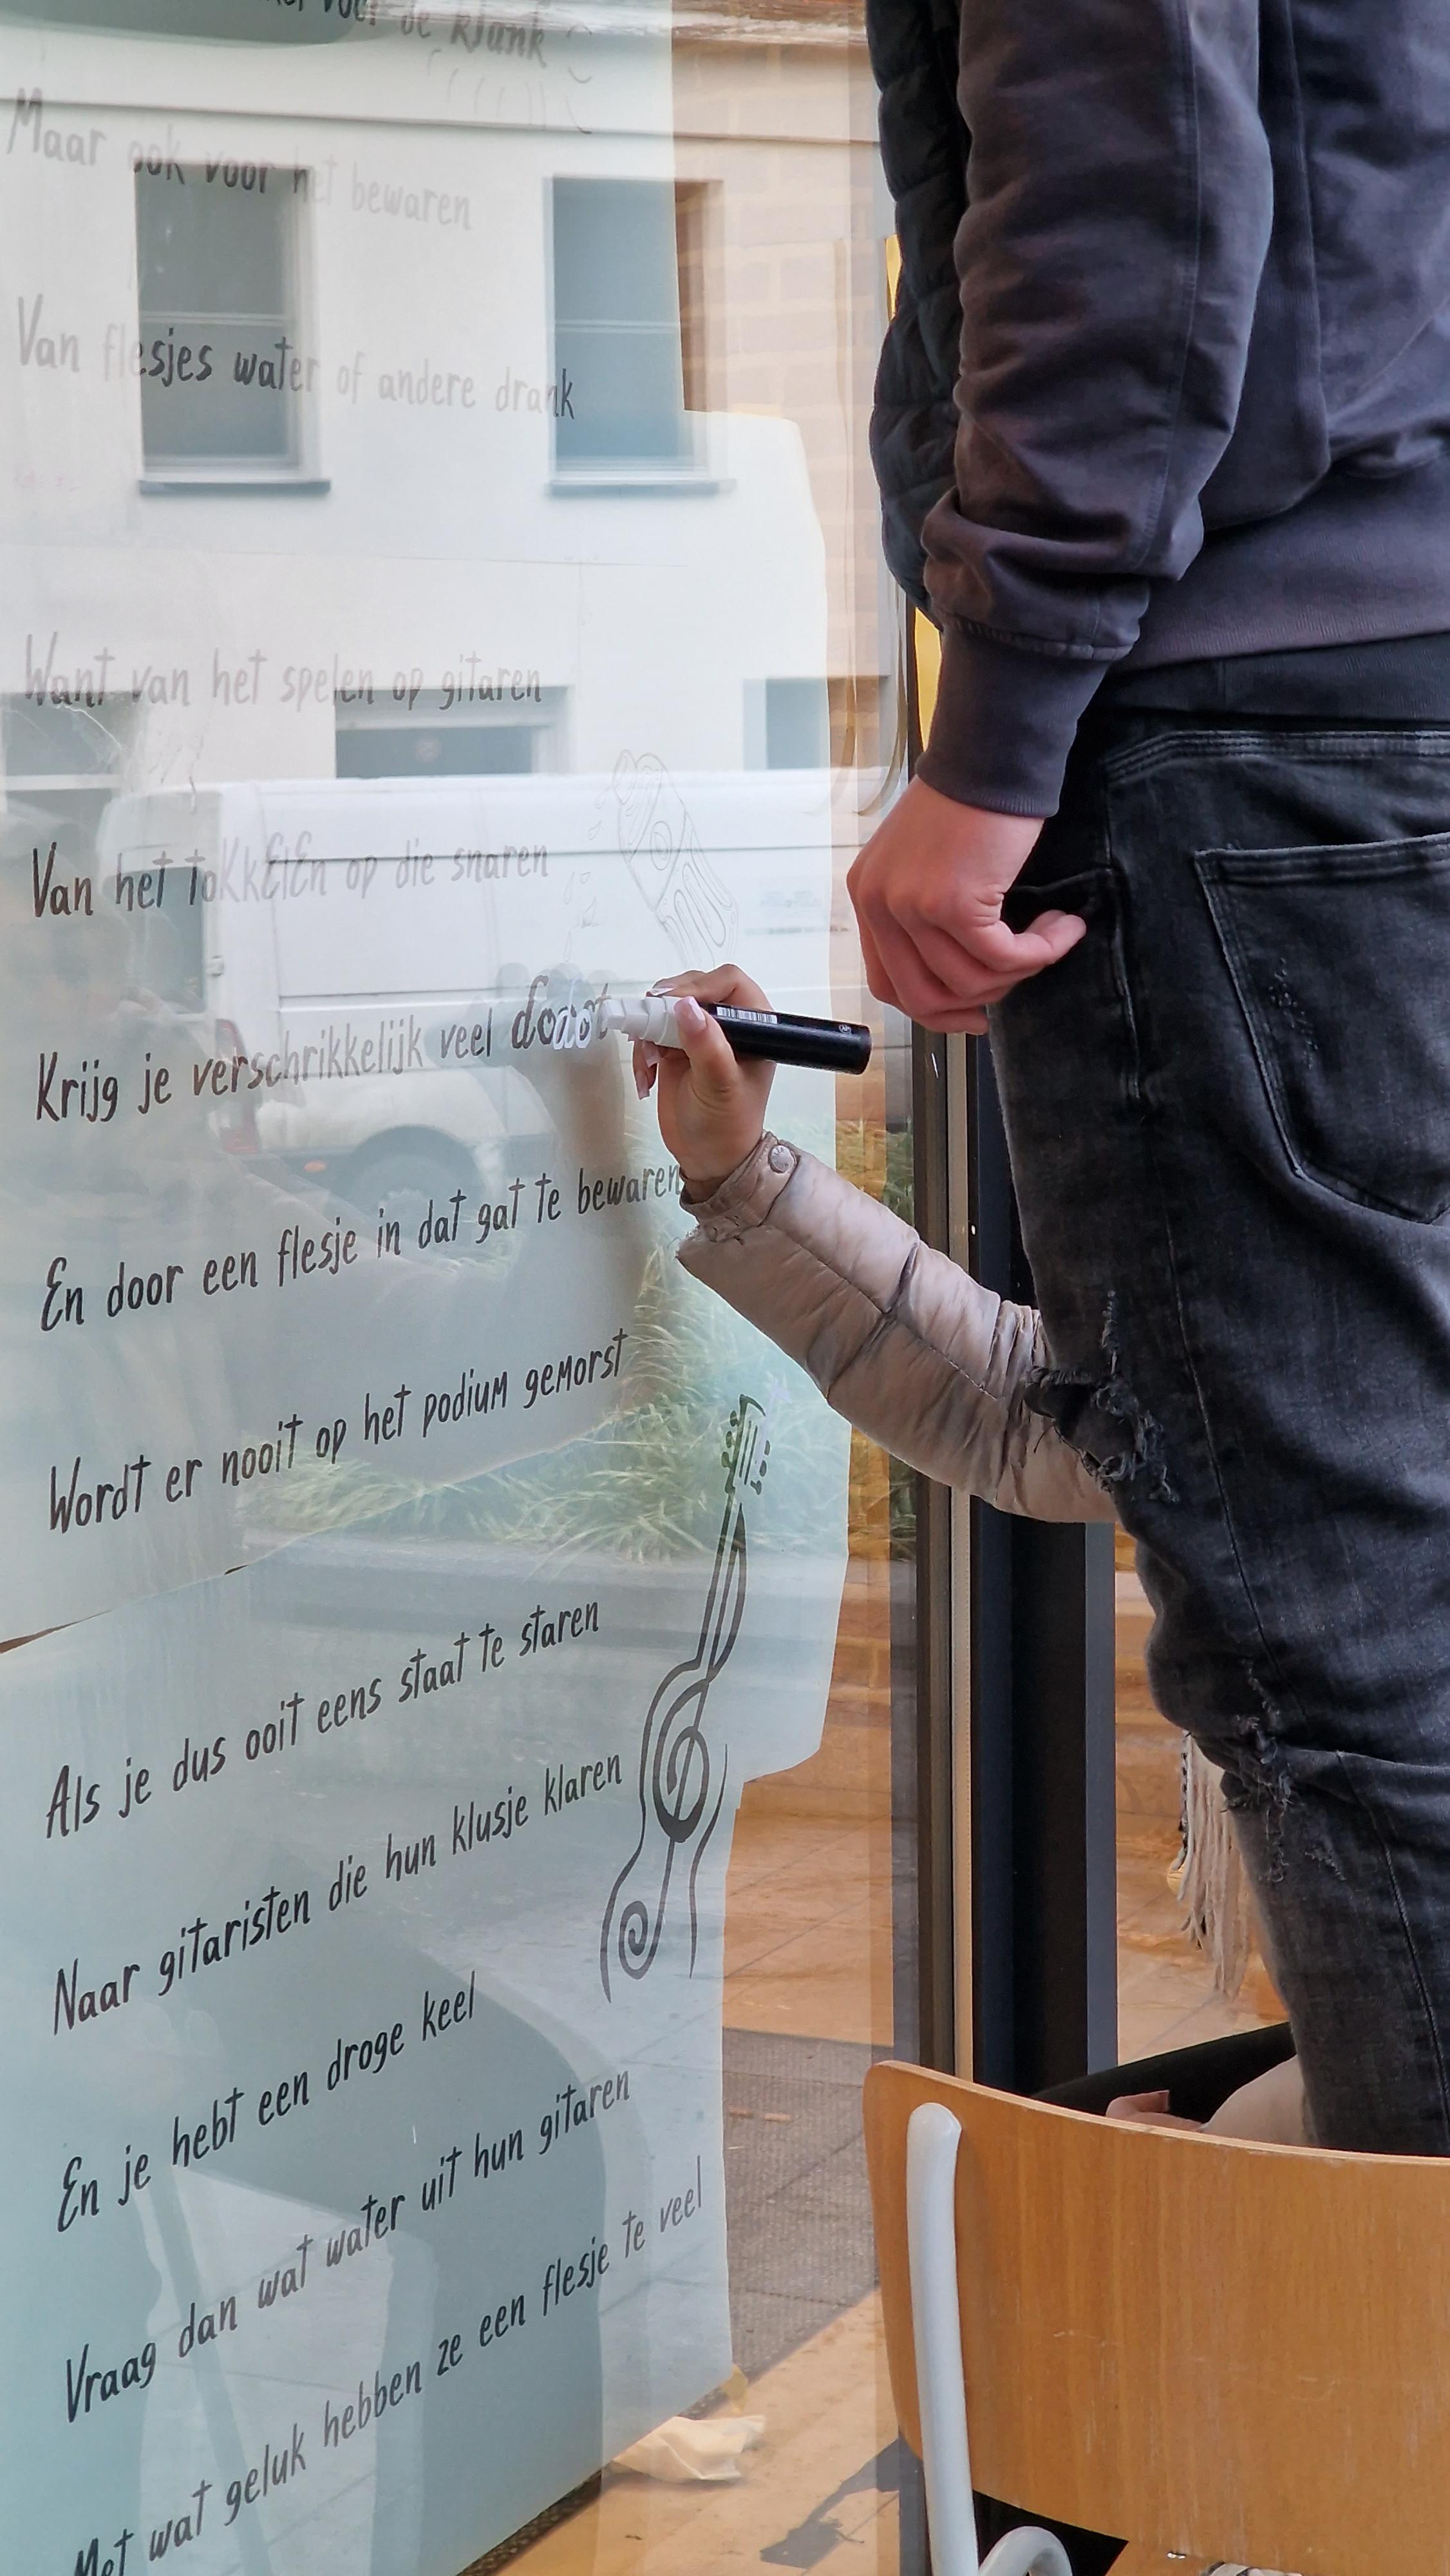 voor de klank
Maar ook voor het bewaren
Van flesjes water of andere drank
Want van het spelen op gitaren
Van het toKkElEn op die snaren
Krijg je verschrikkelijk veel dorst
En door een flesje in dat gat te bewaren
Wordt er nooit op het podium gemorst
Als je dus ooit eens staat te staren
Naar gitaristen die hun klusje klaren
En je hebt een droge keel
Vraag dan wat water uit hun gitaren
Met wat geluk hebben ze een flesje te veel